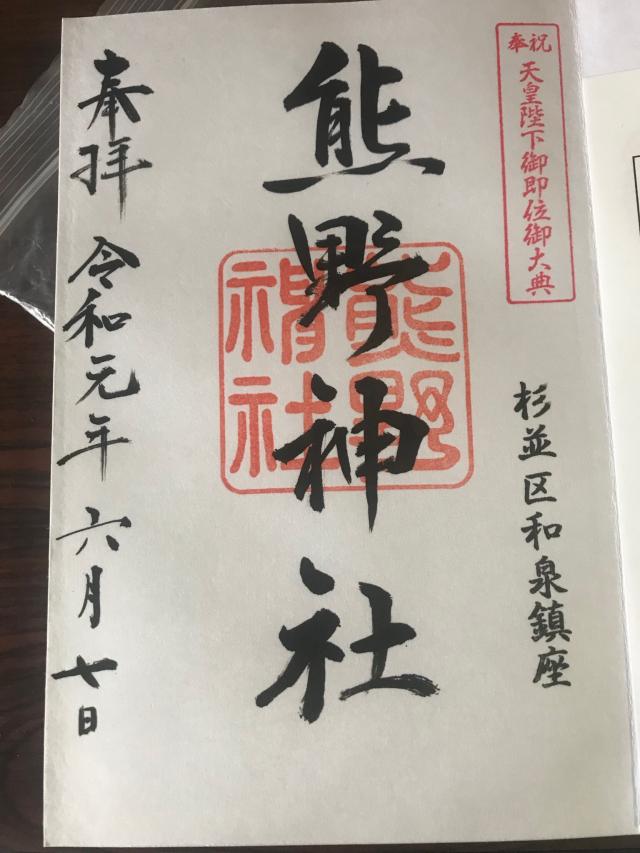 奉祝 天皇陛下御即位御大典
杉並区和泉鎮座
熊野神社
熊野神社
奉拝 令和元年 六月 七日